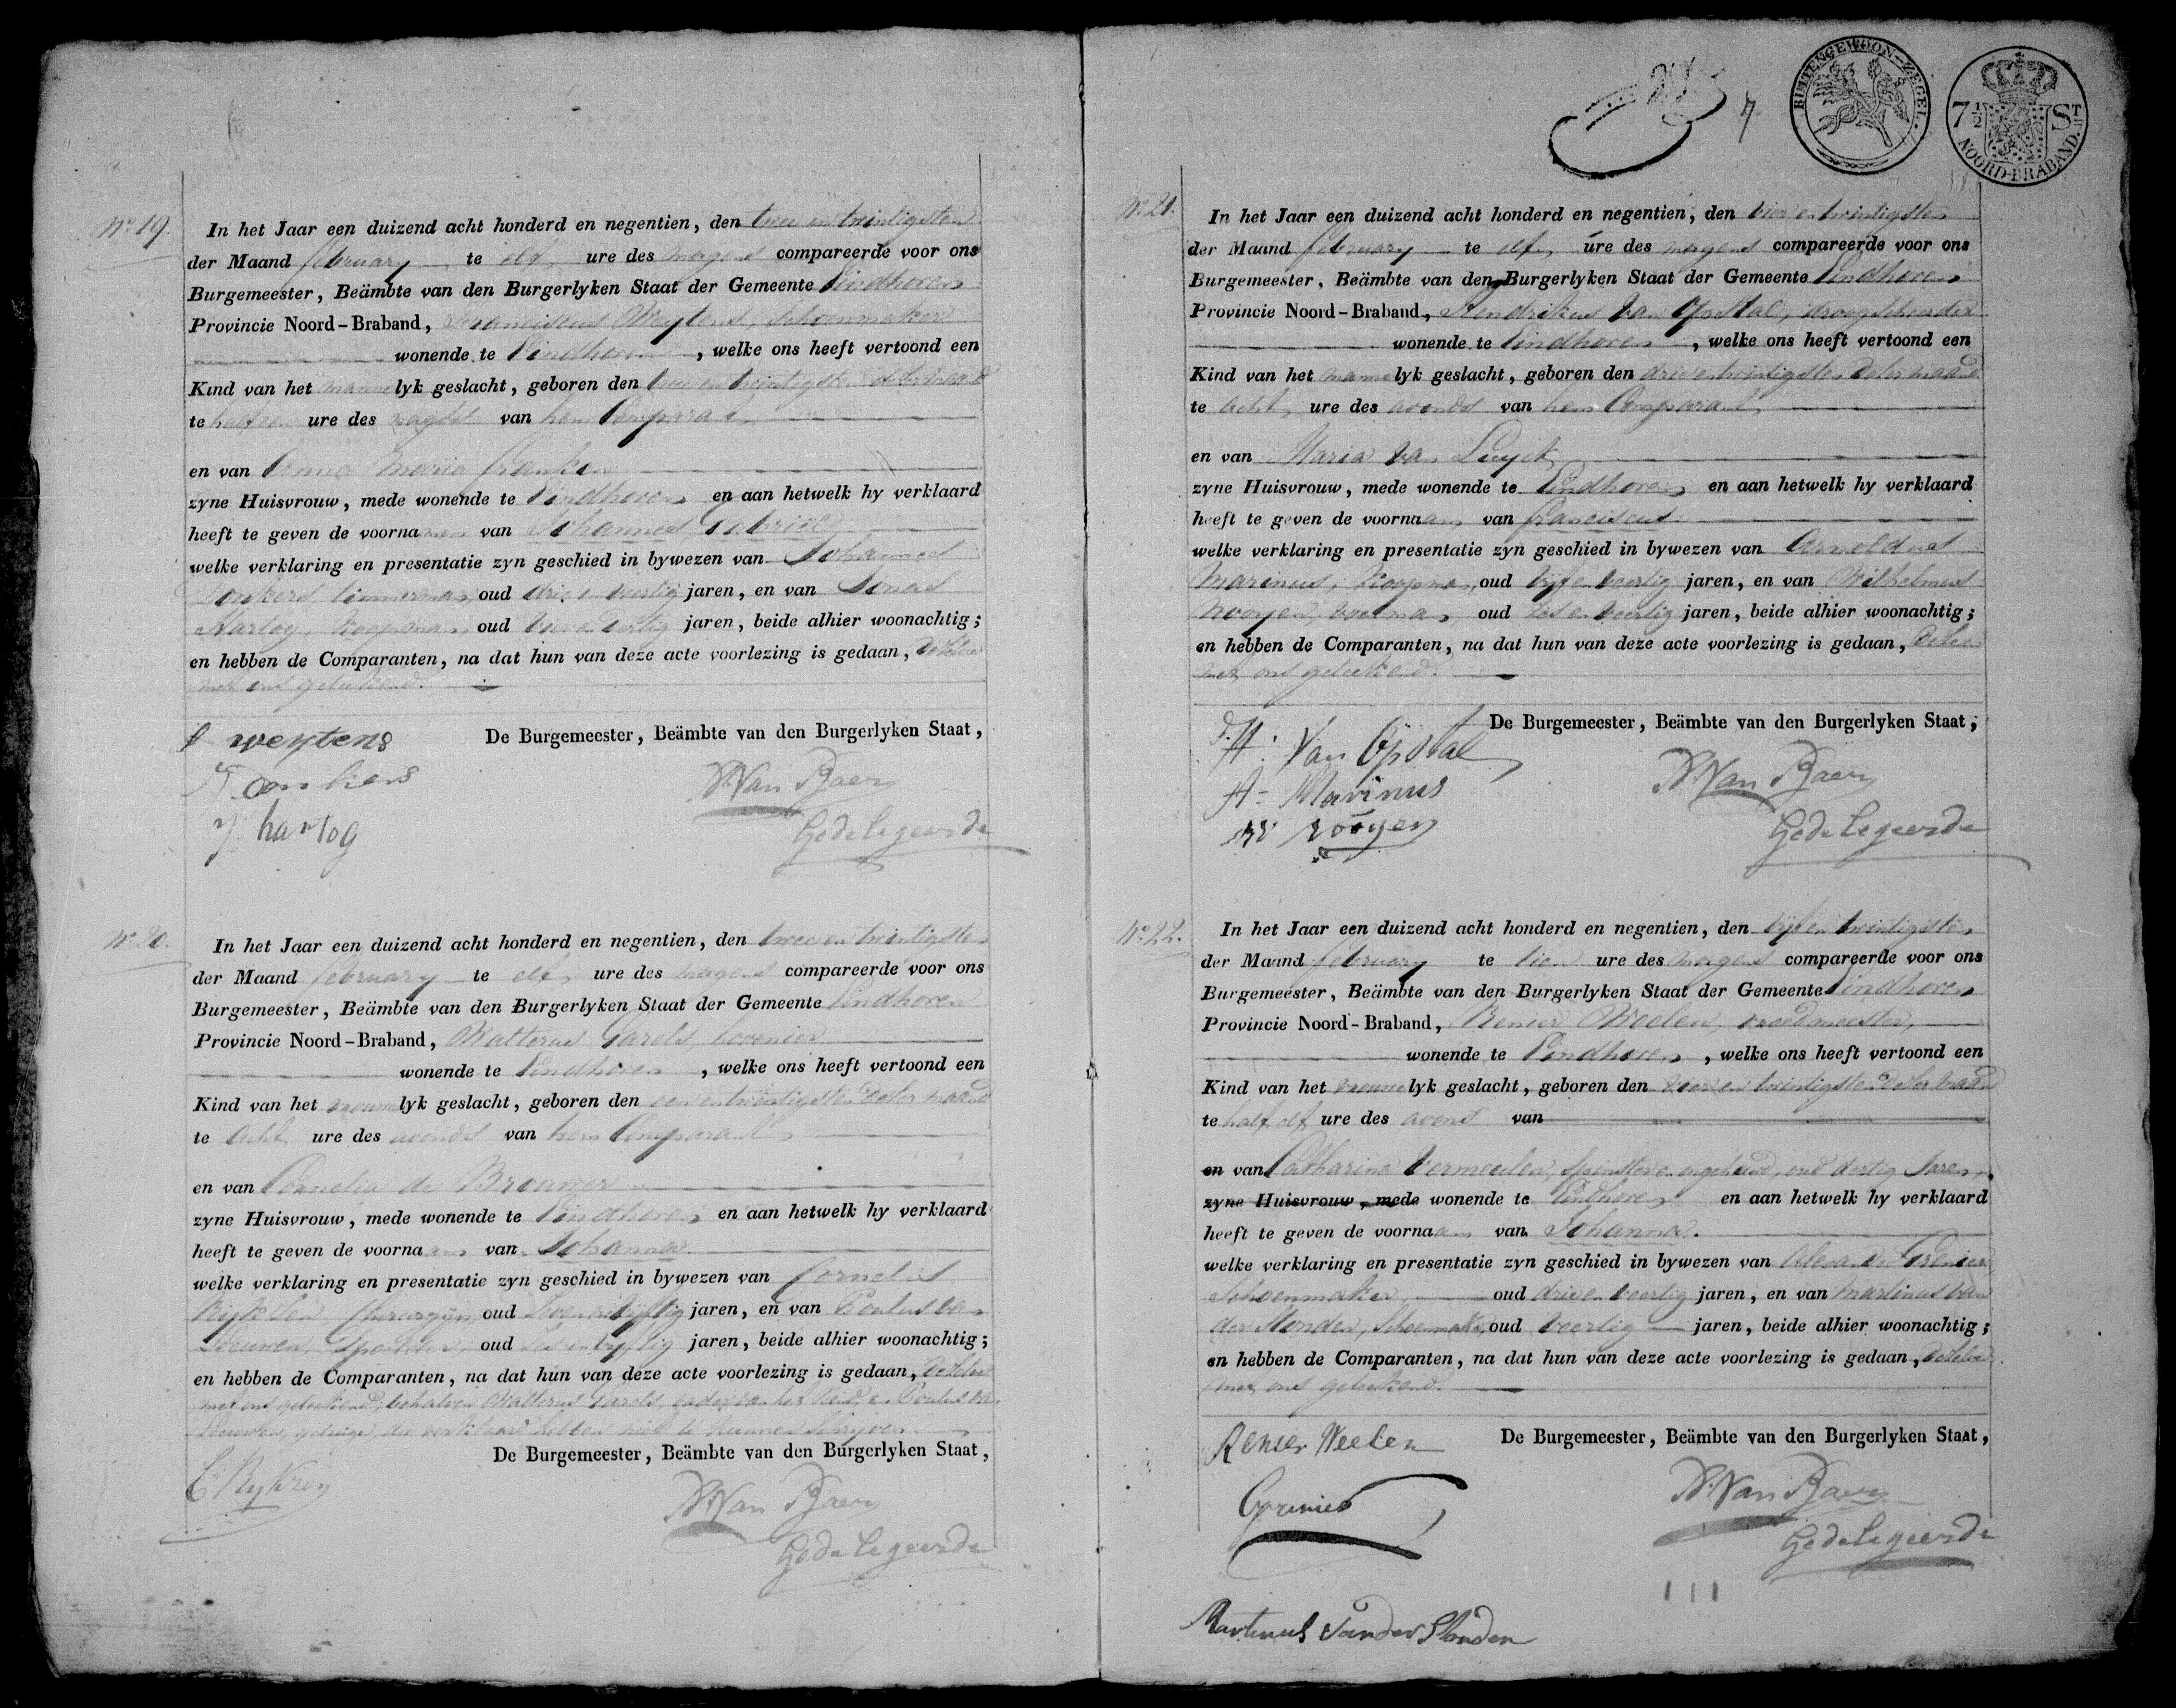 Nº 19.
In het Jaar een duizend acht honderd en negentien, den twee en twintigsten
der Maand february te elf ure des morgens compareerde voor ons
Burgemeester, Beämbte van den Burgerlyken Staat der Gemeente Eindhoven
Provincie Noord-Braband, Franciscus Weytens, schoenmaker
wonende te Eindhoven, welke ons heeft vertoond een
Kind van het mannelyk geslacht, geboren den twee en twintigsten deser maand
te half een ure des nagts van hem Comparant
en van Anna Maria Franken
zyne Huisvrouw, mede wonende te Eindhoven en aan hetwelk hy verklaard
heeft te geven de voornamen van Johannes Gabriël
welke verklaring en presentatie zyn geschied in bywezen van Johannes
Donkers, timmerman, oud drie en veertig jaren, en van Jonas
Hartog, koopman, oud jaren, beide alhier woonachtig;
en hebben de Comparanten, na dat hun van deze acte voorlezing is gedaan, deselve
met ons geteekend.
De Burgemeester, Beämbte van den Burgerlyken Staat,
f weytens
J. Donkers
J. hartog
W. Van Baer
Gedelegeerde
Nº 20.
In het Jaar een duizend acht honderd en negentien, den twee en twintigsten
der Maand february te elf ure des morgens compareerde voor ons
Burgemeester, Beämbte van den Burgerlyken Staat der Gemeente Eindhoven
Provincie Noord-Braband, Walterus Sarols, hovenier
wonende te Eindhoven, welke ons heeft vertoond een
Kind van het vrouwelyk geslacht, geboren den een en twintigsten deser maand
te acht ure des avonds van hem Comparant
en van Cornelia de Brouwer
zyne Huisvrouw, mede wonende te Eindhoven en aan hetwelk hy verklaard
heeft te geven de voornaam van Johanna
welke verklaring en presentatie zyn geschied in bywezen van Cornelis
chirurgijn, oud seven en vijftig jaren, en van Paulus van
Leeuwen, oud ses en vyftig jaren, beide alhier woonachtig;
en hebben de Comparanten, na dat hun van deze acte voorlezing is gedaan, deselve
met ons geteekend, behalven Walterus Sarols, vader van het kind, en Paulus van
Leeuwen, getuige, die verklaard hebben niet te kunnen schrijven
De Burgemeester, Beämbte van den Burgerlyken Staat,
W. Van Baer
Gedelegeerde
7
BUITENGEWOON-ZEGEL.
7½ ST
NOORD-BRABAND.
Nº 21.
In het Jaar een duizend acht honderd en negentien, den vier en twintigsten
der Maand february te elf ure des morgens compareerde voor ons
Burgemeester, Beämbte van den Burgerlyken Staat der Gemeente Eindhoven
Provincie Noord-Braband, Hendrikus van Opstal, droogscheerder
wonende te Eindhoven, welke ons heeft vertoond een
Kind van het mannelyk geslacht, geboren den drie en twintigsten deser maand
te acht ure des avonds van hem Comparant
en van Maria van Luyck
zyne Huisvrouw, mede wonende te Eindhoven en aan hetwelk hy verklaard
heeft te geven de voornaam van franciscus
welke verklaring en presentatie zyn geschied in bywezen van Arnoldus
Marinus, koopman, oud vyf en veertig jaren, en van Wilhelmus
Rooyen, voerman, oud ses en veertig jaren, beide alhier woonachtig;
en hebben de Comparanten, na dat hun van deze acte voorlezing is gedaan, deselve
met ons geteekend.
De Burgemeester, Beämbte van den Burgerlyken Staat,
H. Van Opstal
A = Marinus
W rooyen
W. Van Baer
Gedelegeerde
Nº 22.
In het Jaar een duizend acht honderd en negentien, den vyf en twintigsten
der Maand february te tien ure des morgens compareerde voor ons
Burgemeester, Beämbte van den Burgerlyken Staat der Gemeente Eindhoven
Provincie Noord-Braband, Renier Weelen, vroedmeester,
wonende te Eindhoven, welke ons heeft vertoond een
Kind van het vrouwelyk geslacht, geboren den vier en twintigsten deser maand
te half elf ure des avons van
en van Catharina Vermeulen, spinster en ongehuwd, oud dertig Jaren,
zyne Huisvrouw, mede wonende te Eindhoven en aan hetwelk hy verklaard
heeft te geven de voornaam van Johanna.
welke verklaring en presentatie zyn geschied in bywezen van Grenier
Schoenmaker, oud drie en veertig jaren, en van Martinus van
der Slonden, Schoenmaker, oud veertig jaren, beide alhier woonachtig;
en hebben de Comparanten, na dat hun van deze acte voorlezing is gedaan, deselve
met ons geteekend.
De Burgemeester, Beämbte van den Burgerlyken Staat,
Renier Weelen
Grenier
W. Van Baer
Gedelegeerde
Martinus van der Slonden